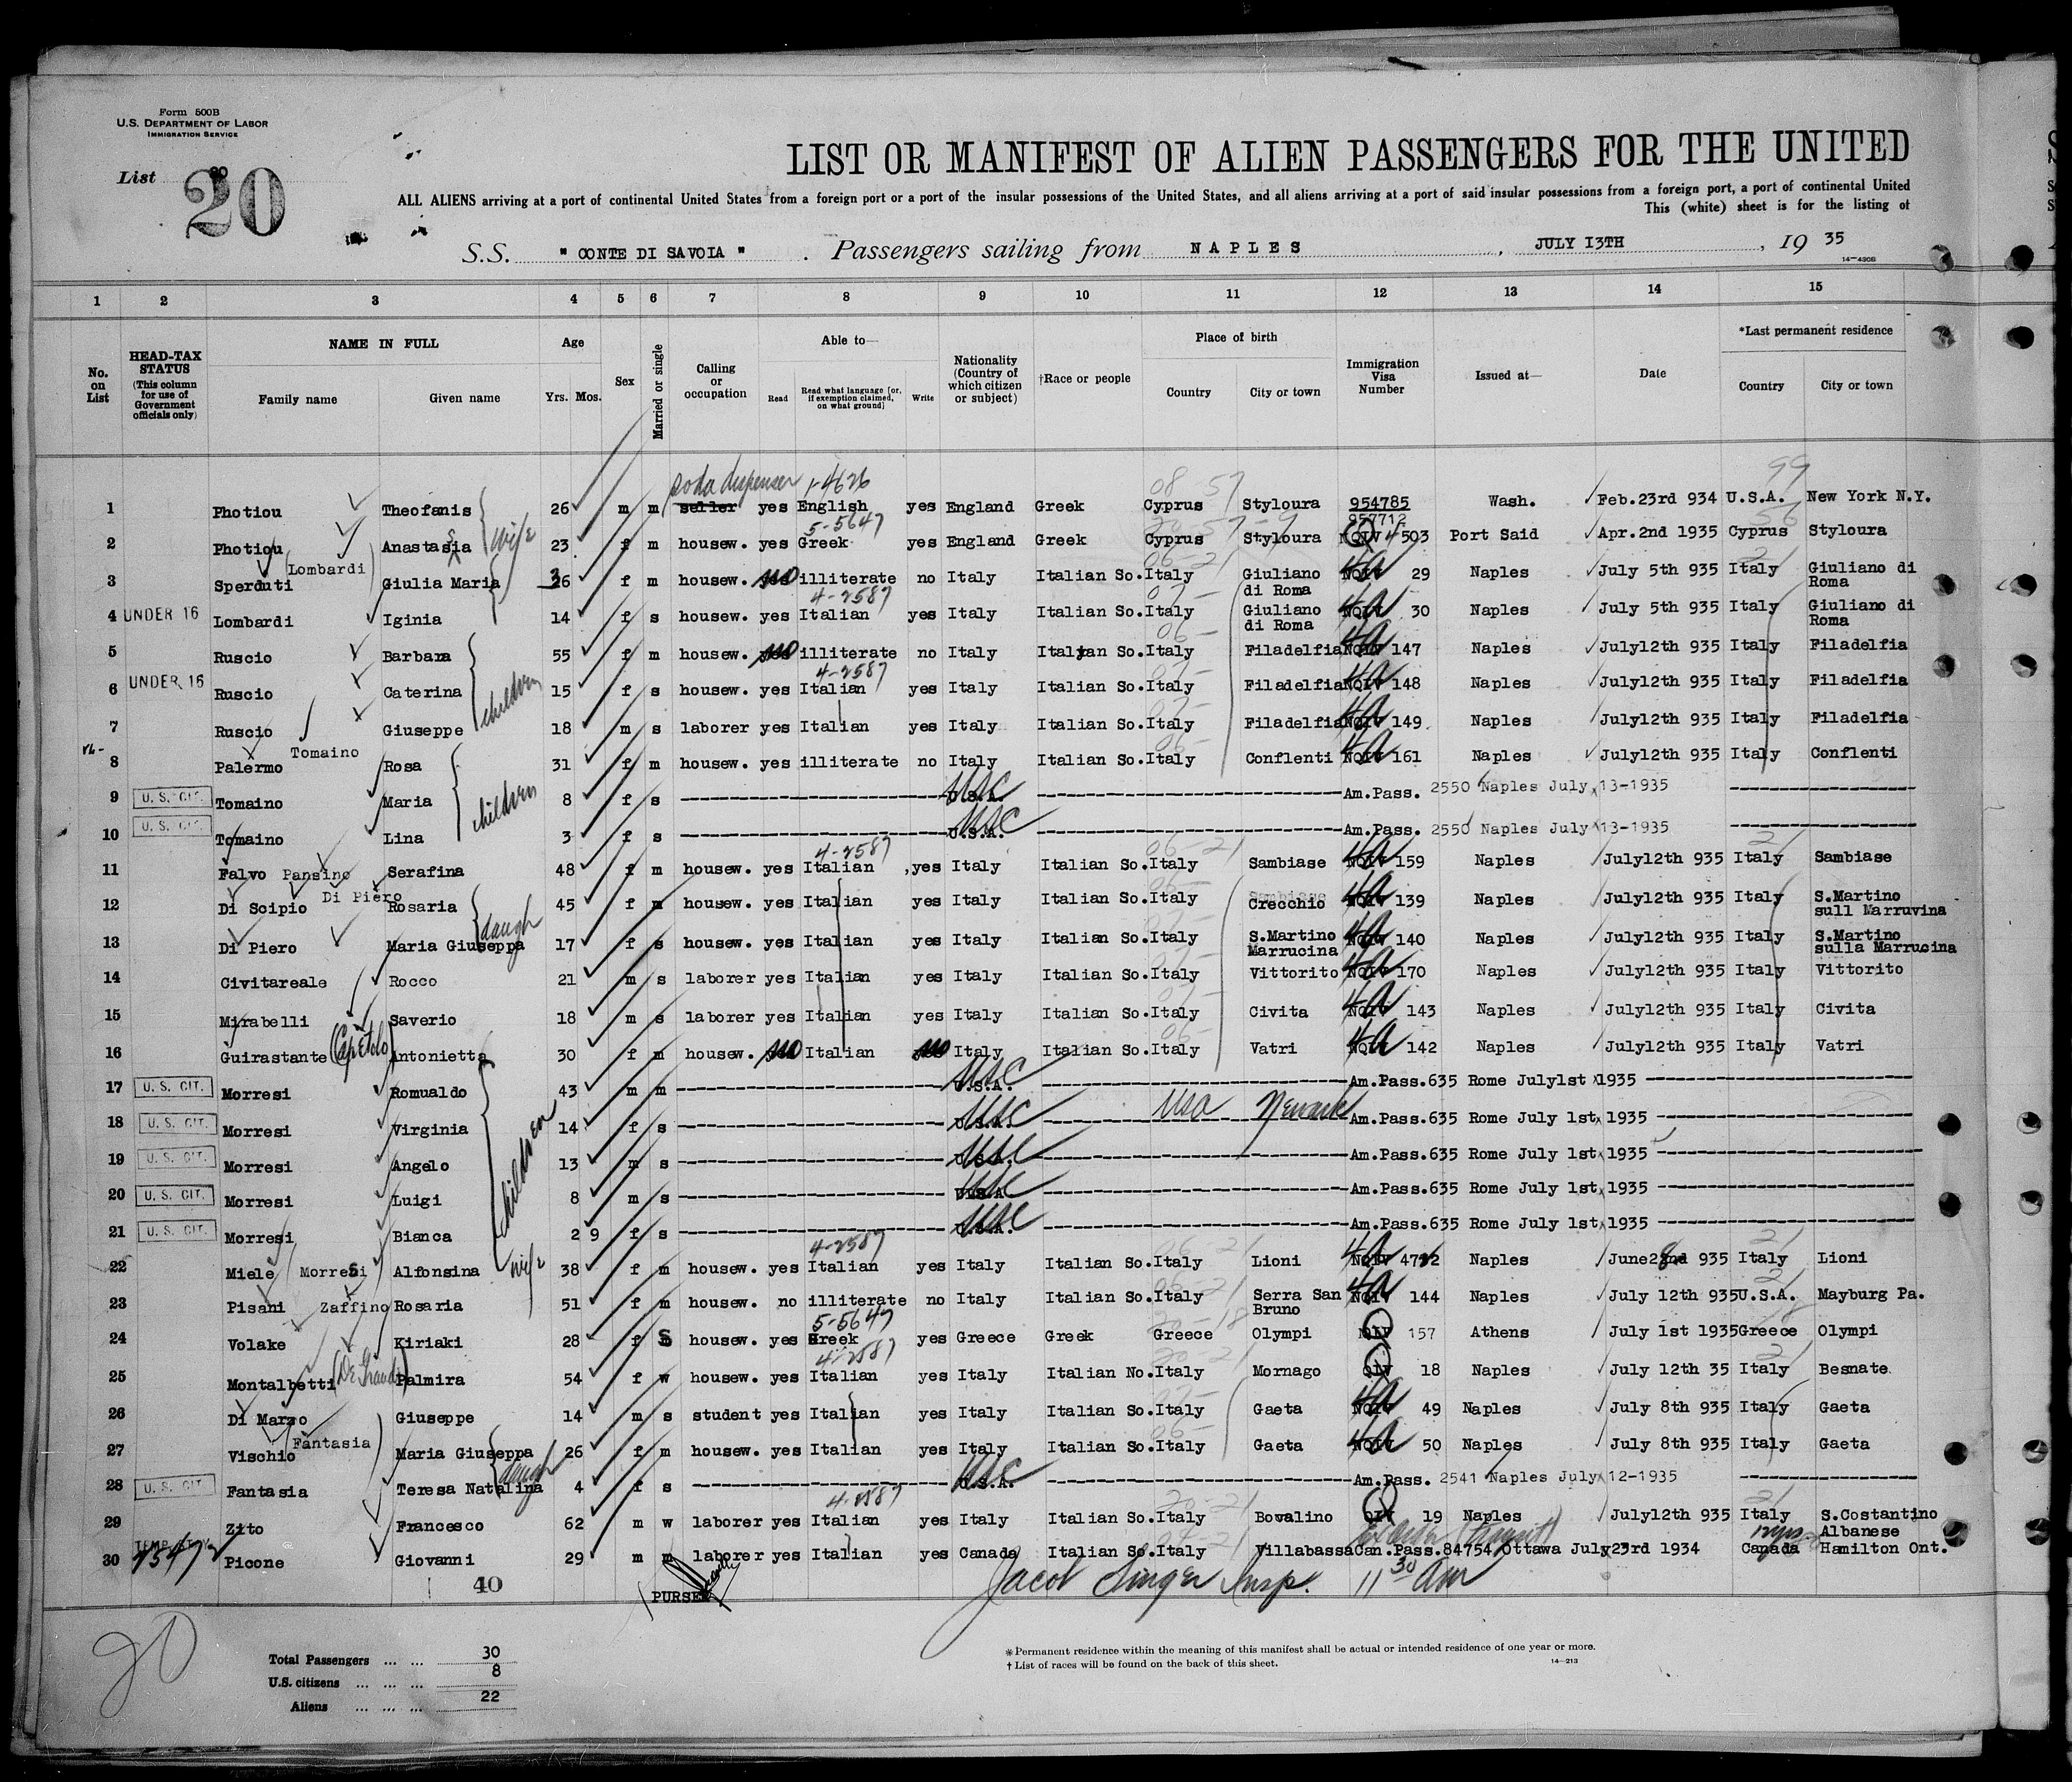 Form 500B
U.S. DEPARTMENT OF LABOR
IMMIGRATION SERVICE
List 20
LIST OR MANIFEST OF ALIEN PASSENGERS FOR THE UNITED
ALL ALIENS arriving at a port of continental United States from a foreign port or a port of the insular possessions of the United States, and all aliens arriving at a port of said insular possessions from a foreign port, a port of continental United
This (white) sheet is for the listing of
S.S. " CONTE DI SAVOIA " . Passengers sailing from NAPLES , JULY 13TH , 19 35
14—430B
1 2 3 4 5 6 7 8 9 10 11 12 13 14 15
No. on List
HEAD-TAX STATUS (This column for use of Government officials only)
NAME IN FULL Family name Given name
Age Yrs. Mos.
Sex
Married or single
Calling or occupation
Able to— Read Read what language [or, if exemption claimed, on what ground] Write
Nationality (Country of which citizen or subject)
†Race or people
Place of birth Country City or town
Immigration Visa Number
Issued at—
Date
*Last permanent residence Country City or town
soda dispenser 1-4626 08 57 99
1 Photiou Theofanis 26 m m seller yes English yes England Greek Cyprus Styloura 954785 Wash. Feb.23rd 934 U.S.A. New York N.Y.
wife 5-5647 957712
2 Photiou Anastasia 23 f m housew. yes Greek yes England Greek Cyprus Styloura NQIV 503 Port Said Apr.2nd 1935 Cyprus Styloura
3 Sperduti (Lombardi) Giulia Maria 36 f m housew. no illiterate no Italy Italian So. Italy Giuliano di Roma 4a NQIV 29 Naples July 5th 935 Italy Giuliano di Roma
4-2587
4 UNDER 16 Lombardi Iginia 14 f s housew. yes Italian yes Italy Italian So. Italy Giuliano di Roma 4a NQIV 30 Naples July 5th 935 Italy Giuliano di Roma
5 Ruscio Barbara 55 f m housew. no illiterate no Italy Italian So. Italy Filadelfia 4a NQIV 147 Naples July12th 935 Italy Filadelfia
4-2587
6 UNDER 16 Ruscio Caterina 15 f s housew. yes Italian yes Italy Italian So. Italy Filadelfia 4a NQIV 148 Naples July12th 935 Italy Filadelfia
children
7 Ruscio Giuseppe 18 m s laborer yes Italian yes Italy Italian So. Italy Filadelfia 4a NQIV 149 Naples July12th 935 Italy Filadelfia
8 Palermo Tomaino Rosa 31 f m housew. yes illiterate no Italy Italian So. Italy Conflenti 4a NQIV 161 Naples July12th 935 Italy Conflenti
9 U. S. CIT. Tomaino Maria 8 f s U.S.A. USC Am.Pass. 2550 Naples July 13-1935
children
10 U. S. CIT. Tomaino Lina 3 f s U.S.A. USC Am.Pass. 2550 Naples July 13-1935
4-2587
11 Falvo Pansino Serafina 48 f m housew. yes Italian yes Italy Italian So. Italy Sambiase 4a NQIV 159 Naples July12th 935 Italy Sambiase
12 Di Scipio Di Piero Rosaria 45 f m housew. yes Italian yes Italy Italian So. Italy Crecchio 4a NQIV 139 Naples July12th 935 Italy S.Martino sull Marruvina
daugh
13 Di Piero Maria Giuseppa 17 f s housew. yes Italian yes Italy Italian So. Italy S.Martino Marrucina 4a NQIV 140 Naples July12th 935 Italy S.Martino sulla Marrucina
14 Civitareale Rocco 21 m s laborer yes Italian yes Italy Italian So. Italy Vittorito 4a NQIV 170 Naples July12th 935 Italy Vittorito
15 Mirabelli Saverio 18 m s laborer yes Italian yes Italy Italian So. Italy Civita 4a NQIV 143 Naples July12th 935 Italy Civita
16 Guirastante (Capitolo) Antonietta 30 f m housew. no Italian no Italy Italian So. Italy Vatri 4a NQIV 142 Naples July12th 935 Italy Vatri
17 U. S. CIT. Morresi Romualdo 43 m m U.S.A. USC Am.Pass.635 Rome July1st 1935
18 U. S. CIT. Morresi Virginia 14 f s U.S.A. USC USA Newark Am.Pass.635 Rome July 1st 1935
children
19 U. S. CIT. Morresi Angelo 13 m s U.S.A. USC Am.Pass.635 Rome July 1st 1935
20 U. S. CIT. Morresi Luigi 8 m s U.S.A. USC Am.Pass.635 Rome July 1st 1935
21 U. S. CIT. Morresi Bianca 2 9 f s U.S.A. USC Am.Pass.635 Rome July 1st 1935
wife 4-2587
22 Miele (Morresi) Alfonsina 38 f m housew. yes Italian yes Italy Italian So. Italy Lioni 4a NQIV Naples June 935 Italy Lioni
23 Pisani Zaffino Rosaria 51 f m housew. no illiterate no Italy Italian So. Italy Serra San Bruno 4a NQIV 144 Naples July 12th 935 U.S.A. Mayburg Pa.
5-5647
24 Volake Kiriaki 28 f S housew. yes Greek yes Greece Greek Greece Olympi QIV 157 Athens July 1st 1935 Greece Olympi
4-2587
25 Montalbetti Palmira 54 f w housew. yes Italian yes Italy Italian No. Italy Mornago QIV 18 Naples July 12th 35 Italy Besnate
26 Di Marzo Giuseppe 14 m s student yes Italian yes Italy Italian So. Italy Gaeta 4a NQIV 49 Naples July 8th 935 Italy Gaeta
27 Vischio (Fantasia) Maria Giuseppa 26 f m housew. yes Italian yes Italy Italian So. Italy Gaeta 4a NQIV 50 Naples July 8th 935 Italy Gaeta
daugh
28 U. S. CIT. Fantasia Teresa Natalina 4 f s U.S.A. USC Am.Pass. 2541 Naples July 12-1935
4-2587
29 Zito Francesco 62 m w laborer yes Italian yes Italy Italian So. Italy Bovalino QIV 19 Naples July12th 935 Italy S.Costantino Albanese
30 Picone Giovanni 29 m m laborer yes Italian yes Canada Italian So. Italy Villabassa Can.Pass.84754 Ottawa July 23rd 1934 Canada Hamilton Ont.
40 PURSER Jacob Singer Insp. 11 30 AM
20
Total Passengers ... ... 30
U.S. citizens ... ... ... 8
Aliens ... ... ... 22
* Permanent residence within the meaning of this manifest shall be actual or intended residence of one year or more.
† List of races will be found on the back of this sheet. 14—213